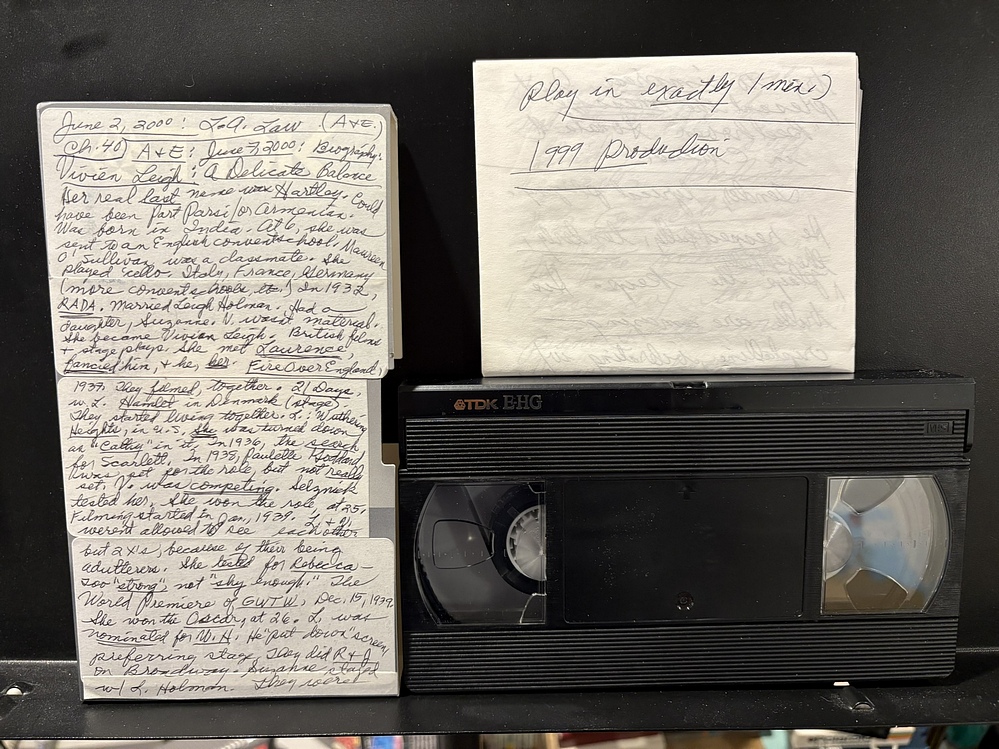 June 2, 2000: L.A. Law (A+E.)
(Ch. 40) A+E: June 7, 2000: Biography:
Vivien Leigh: A Delicate Balance
Her real last name was Hartley. Could
have been Part Parsi/or Armenian.
Was born in India. At 6, she was
sent to an English convent school, Maureen
O'Sullivan was a classmate. She
played 'cello. Italy, France, Germany
(more convent schools, etc.) In 1932,
RADA. Married Leigh Holman. Had a
daughter, Suzanne. V. wasn't material.
She became Vivien Leigh. British films
+ stage plays. She met Laurence,
fancied him, + he, her. Fire Over England,
1937. They filmed, together. 21 Days,
w. L. Hamlet in Denmark (stage)
They started living together. L: Wuthering
Heights, in U.S. She was turned down
as "Cathy" in it. In 1936, the search
for Scarlett. In 1938, Paulette Goddard
was set for the role, but not really
set. V. was competing. Selznick
tested her. She won the role, at 25.
Filming started in Jan., 1939. L + V.
weren't allowed to see each other
but 2 x's, because of their being
adulterers. She tested for Rebecca—
too "strong", not "shy enough." The
World Premiere of GWTW, Dec. 15, 1939.
She won the Oscar, at 26. L. was
nominated for W.H. He "put down" screen,
preferring stage. They did R + J
on Broadway. Suzanne stayed
w/ L. Holman. They were
play in exactly 1 min.)
1999 Production
TDK E-HG
VHS